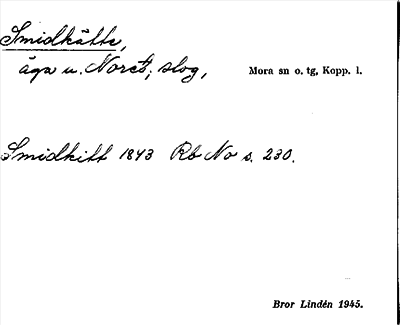 Smidkätte,
äga u. Noret, slog, Mora sn o. tg, Kopp. l.
Smidkitt 1843 Rb No s. 230.
Bror Lindén 1945.